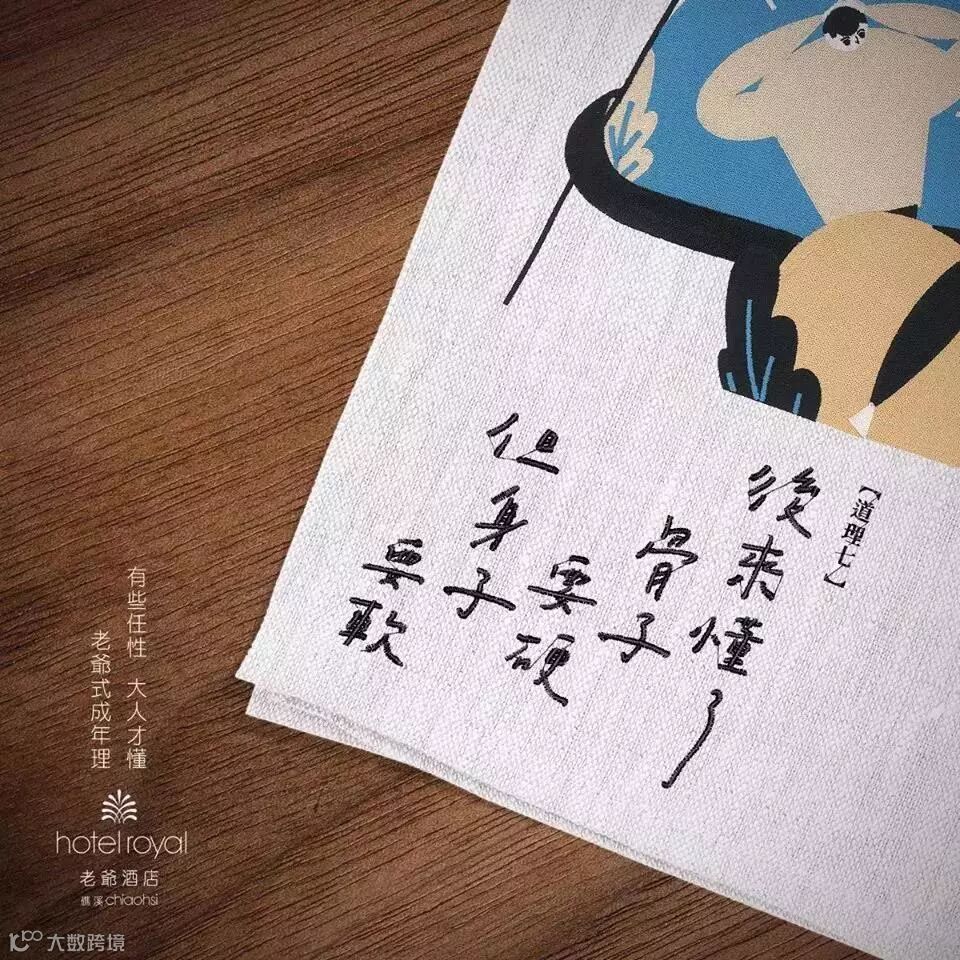 【道理七】
後來懂了
骨子
要硬
但身子
要軟
有些任性 大人才懂
老爺式成年理
hotel royal
老爺酒店
礁溪 chiaohsi
大数跨境